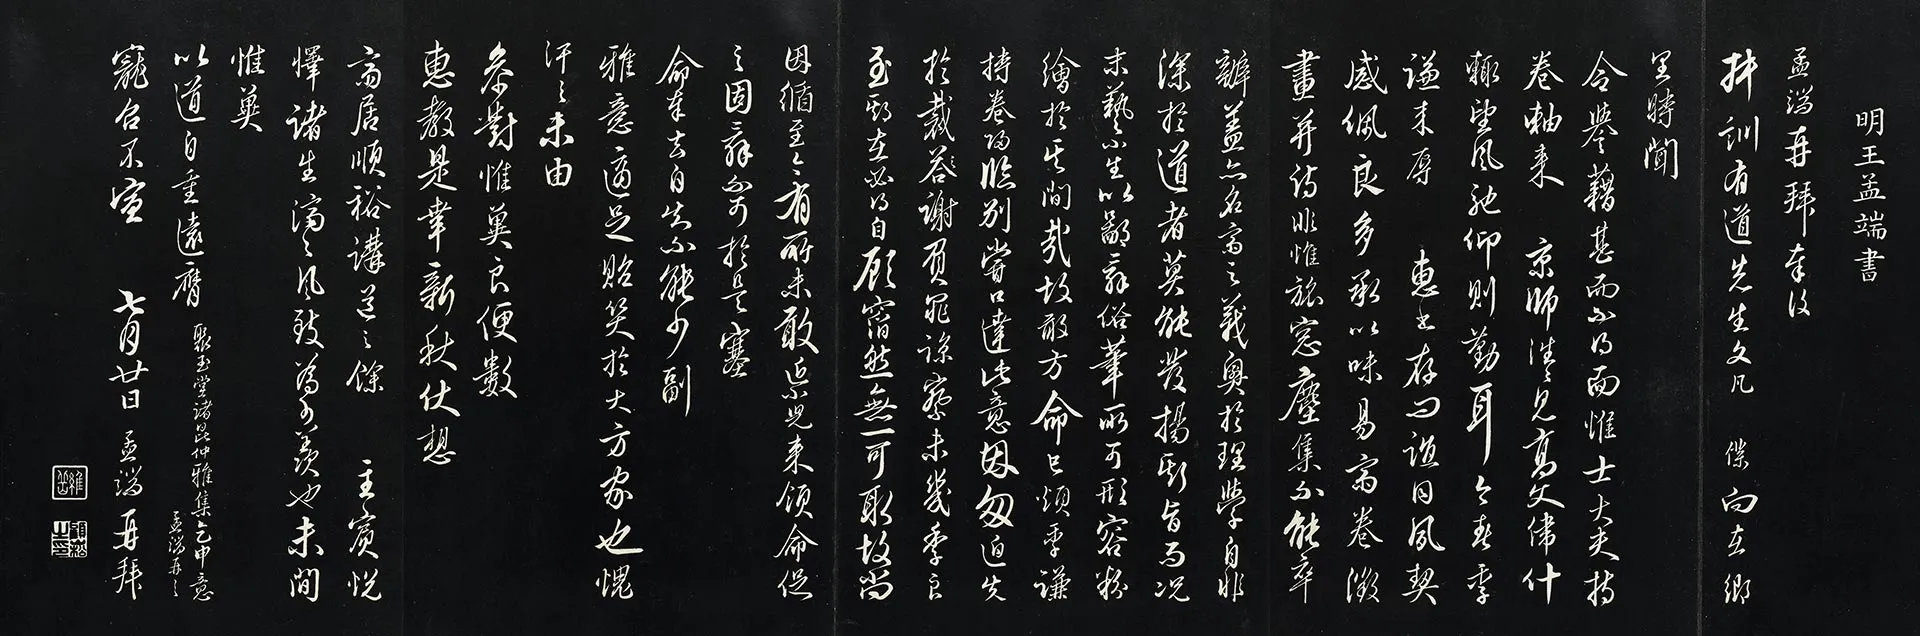 明王孟端書
孟端再拜奉復
拜訓有道先生文几 僕向在鄉
里時聞
令譽藉甚而不得面惟士大夫持
卷軸來 京師浩浩見高文偉什
輒望風馳仰則勤耳今春季
謙來辱 惠書存問誼同夙契
感佩良多承以味易齋卷徵
畫并詩非惟旅窓塵集不能卒
辦蓋亦名齋之義奧於理學自非
深於道者莫能發揚斯旨而況
末藝小生以鄙辭俗筆所可形容粉
繪於其間哉故敢方命已煩季謙
持卷歸臨別嘗口達此意因匆迫失
於裁答謝罪諒察未幾季良
至斯在必得自顧寠然無一可取故尚
因循至今有所未敢近兒來領命促
之固辭不可於是塞
命奉去自知不能少副
雅意適足貽笑於大方家也愧
汗汗未由
參對惟冀良便數
惠教是幸新秋伏想
齋居順裕講道之餘 主賓悅
懌諸生濟濟風致為可羨也未間
惟冀
以道自重遠膺
聚玉堂諸昆仲雅集乞申意
孟端再言
寵召不宣 七月廿日 孟端再拜